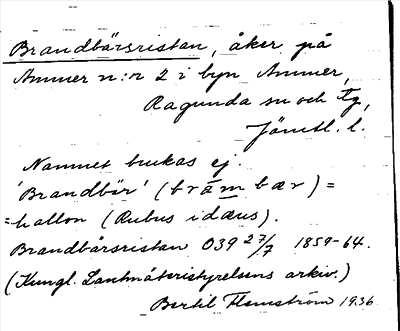 Brandbärsristan, åker på
Ammer n:r 2 i byn Ammer,
Ragunda sn och tg,
Jämtl. l.
Namnet brukas ej.
'Brandbär' (bra̅m bær) =
= hallon (Rubus idæus).
Brandbärsristan O39 27/7 1859-64.
(Kungl. Lantmäteristyrelsens arkiv.)
Bertil Flemström 1936.